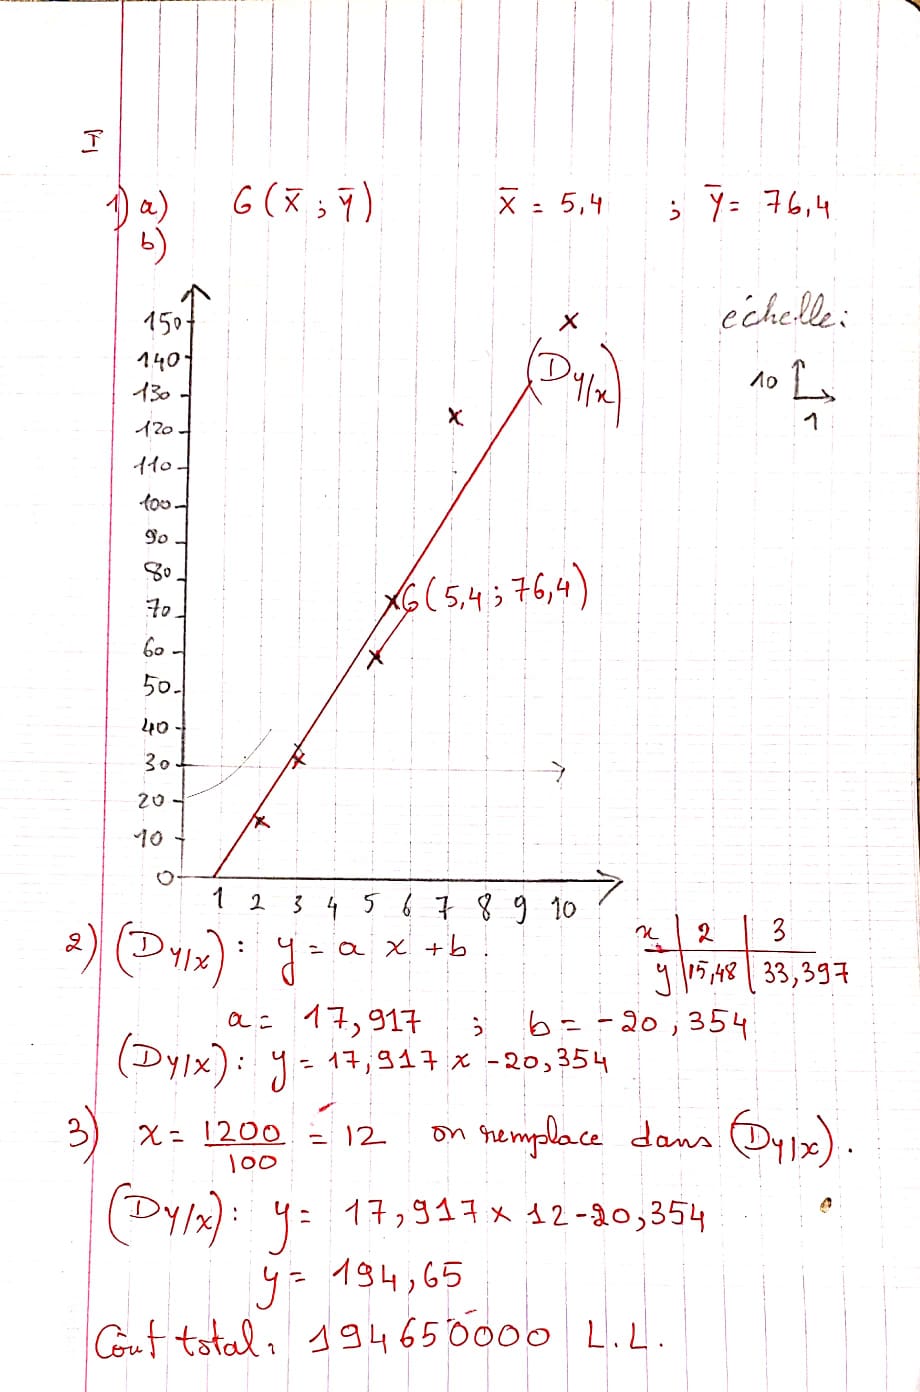 I
1) a) G(x̄ ; ȳ) x̄ = 5,4 ; ȳ = 76,4
b)
échelle:
10
1
150
140
130
120
110
100
90
80
70
60
50
40
30
20
10
0
(Dy/x)
G(5,4 ; 76,4)
1 2 3 4 5 6 7 8 9 10
2) (Dy/x) : y = a x + b.
x | 2 | 3
y | 15,48 | 33,397
a = 17,917 ; b = -20,354
(Dy/x) : y = 17,917 x - 20,354
3) x = 1200/100 = 12 on remplace dans (Dy/x).
(Dy/x) : y = 17,917 x 12 - 20,354
y = 194,65
Coût total : 194650000 L.L.